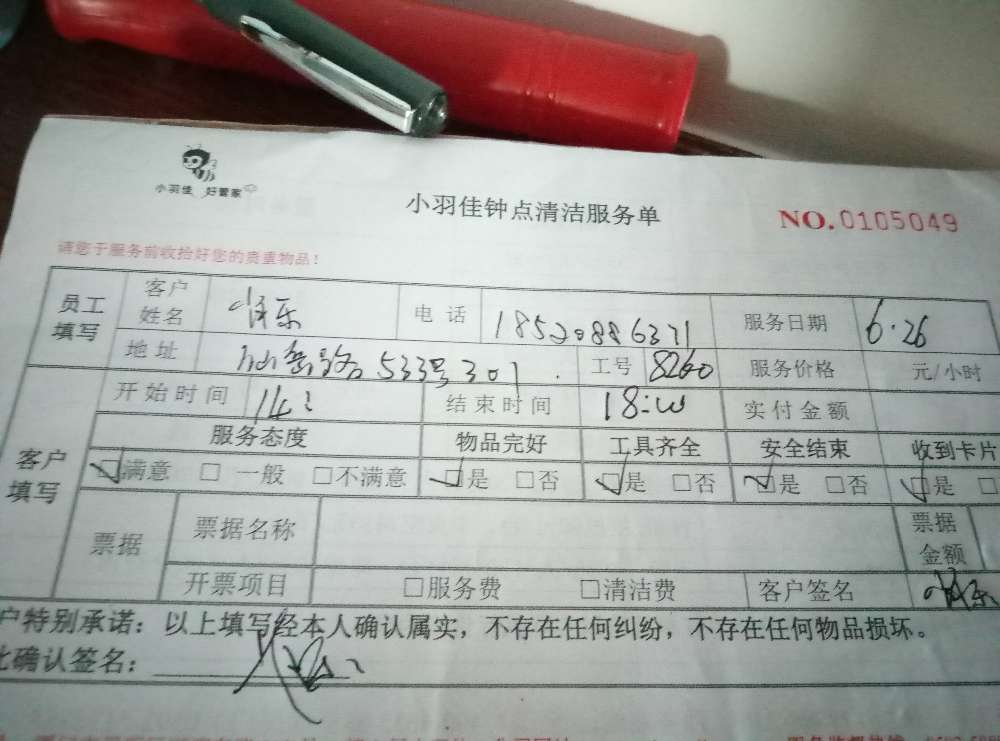 小羽佳 好管家
小羽佳钟点清洁服务单
NO.0105049
请您于服务前收拾好您的贵重物品！
员工填写 客户姓名 电话 18520886371 服务日期 6.26
地址 路533号301 工号 8260 服务价格 元/小时
客户填写 开始时间 14: 结束时间 18:00 实付金额
服务态度 物品完好 工具齐全 安全结束 收到卡片
满意 一般 不满意 是 否 是 否 是 否 是
票据 票据名称 票据金额
开票项目 服务费 清洁费 客户签名
户特别承诺：以上填写经本人确认属实，不存在任何纠纷，不存在任何物品损坏。
此确认签名：